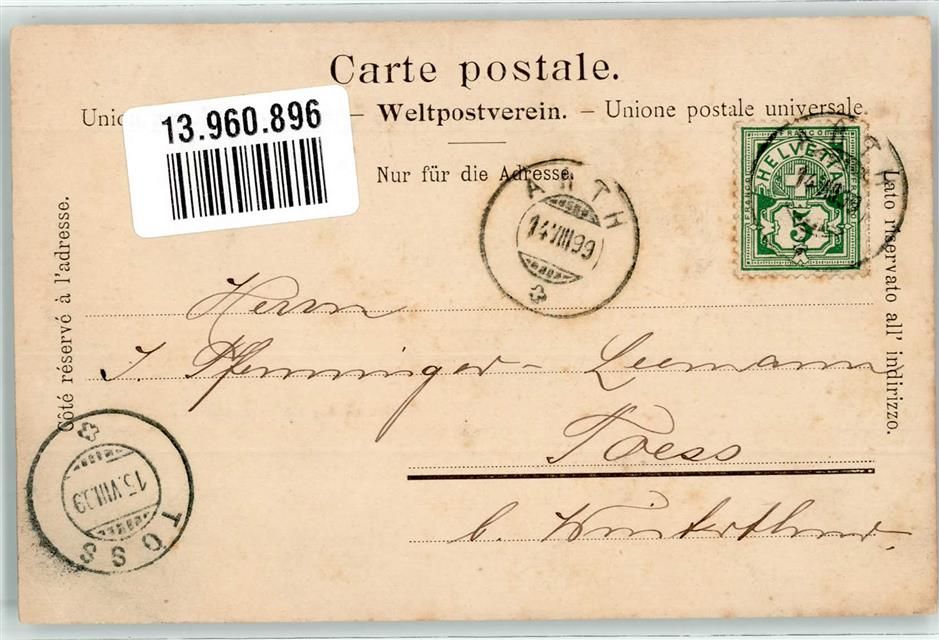 Carte postale.
13.960.896
Weltpostverein. – Unione postale universale.
Nur für die Adresse.
ARTH
14.VIII.99
ARTH
FRANCO
HELVETIA
5
Côté réservé à l'adresse.
Lato riservato all' indirizzo.
Herrn
J. Pfenninger - Leemann
Toess
b. Winterthur.
15.VIII.99
TÖSS